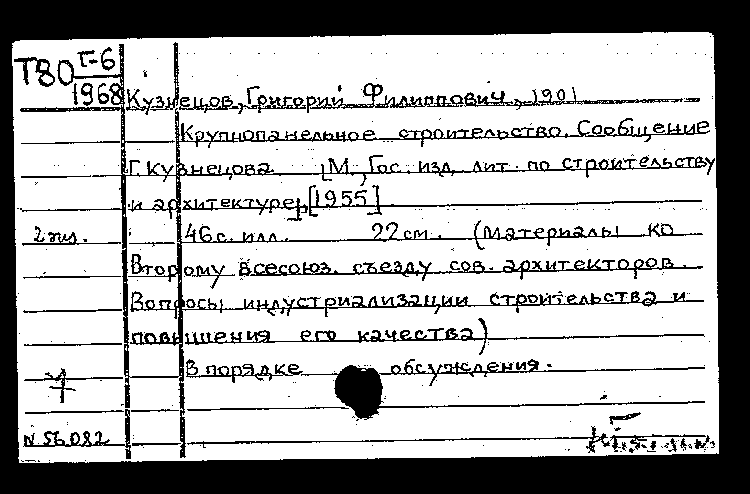 Т80 Г-6
1968
Кузнецов, Григорий Филиппович, 1901
Крупнопанельное строительство. Сообщение
Г. Кузнецова [М., Гос. изд. лит. по строительству
и архитектуре], [1955]
2 экз. 46 с. илл. 22 см. (Материалы ко
Второму всесоюз. съезду сов. архитекторов.
Вопросы индустриализации строительства и
повышения его качества)
В порядке обсуждения.
N 56.082